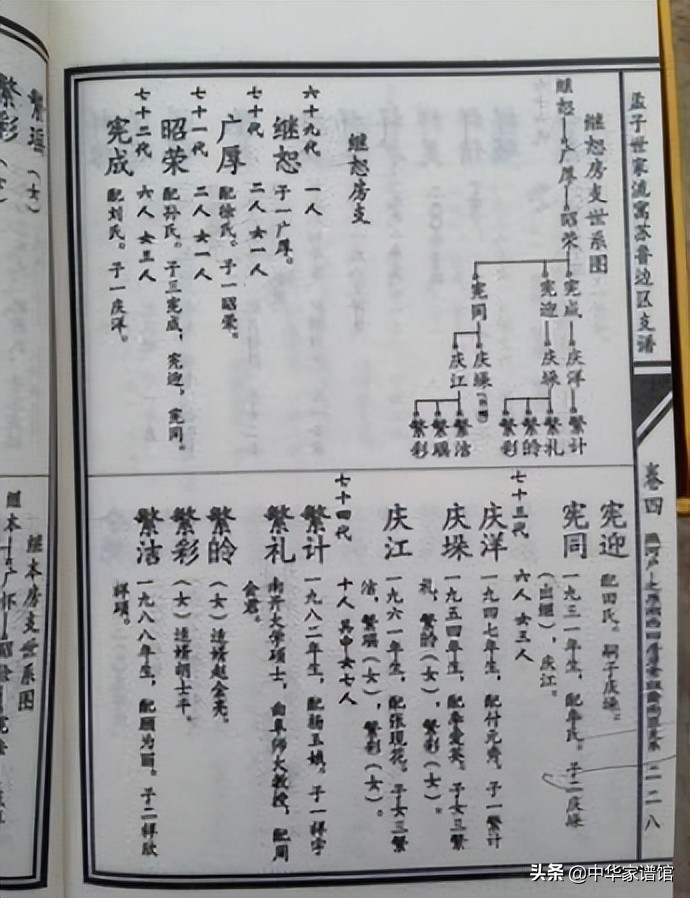 孟子世家流寓苏鲁边区支谱
卷四
二二八
继恕房支世系图
继恕—广厚—昭荣
宪成—庆洋—繁计
宪迎—庆垛
繁礼
繁昤
繁彩
宪同
庆垛
庆江
繁洁
繁彩
继恕房支
六十九代 一人
继恕 子一广厚。
七十代 二人 女一人
广厚 配徐氏。子一昭荣。
七十一代 二人 女一人
昭荣 配孙氏。子三宪成，宪迎，宪同。
七十二代 六人 女三人
宪成 配刘氏。子一庆洋。
宪迎 配田氏。嗣子庆垛。
宪同 一九三一年生，配李氏。子二庆垛
（出继），庆江。
七十三代 六人 女三人
庆洋 一九四七年生，配付元秀。子一繁计
庆垛 一九五四年生，配李爱英。子女三繁
礼，繁昤（女），繁彩（女）。
庆江 一九六一年生，配张现花。子女三繁
洁，繁（女），繁彩（女）。
七十四代 十人 女七人
繁计 一九八二年生，配杨玉娥。子一祥宇
繁礼 南开大学硕士，曲阜师大教授，配周
金君。
繁昤 （女）适婿赵金亮。
繁彩 （女）适婿胡士平。
繁洁 一九八八年生，配顾为丽。子二祥欣
祥硕。
继本房支世系图
繁彩
（女）
头条 @中华家谱馆